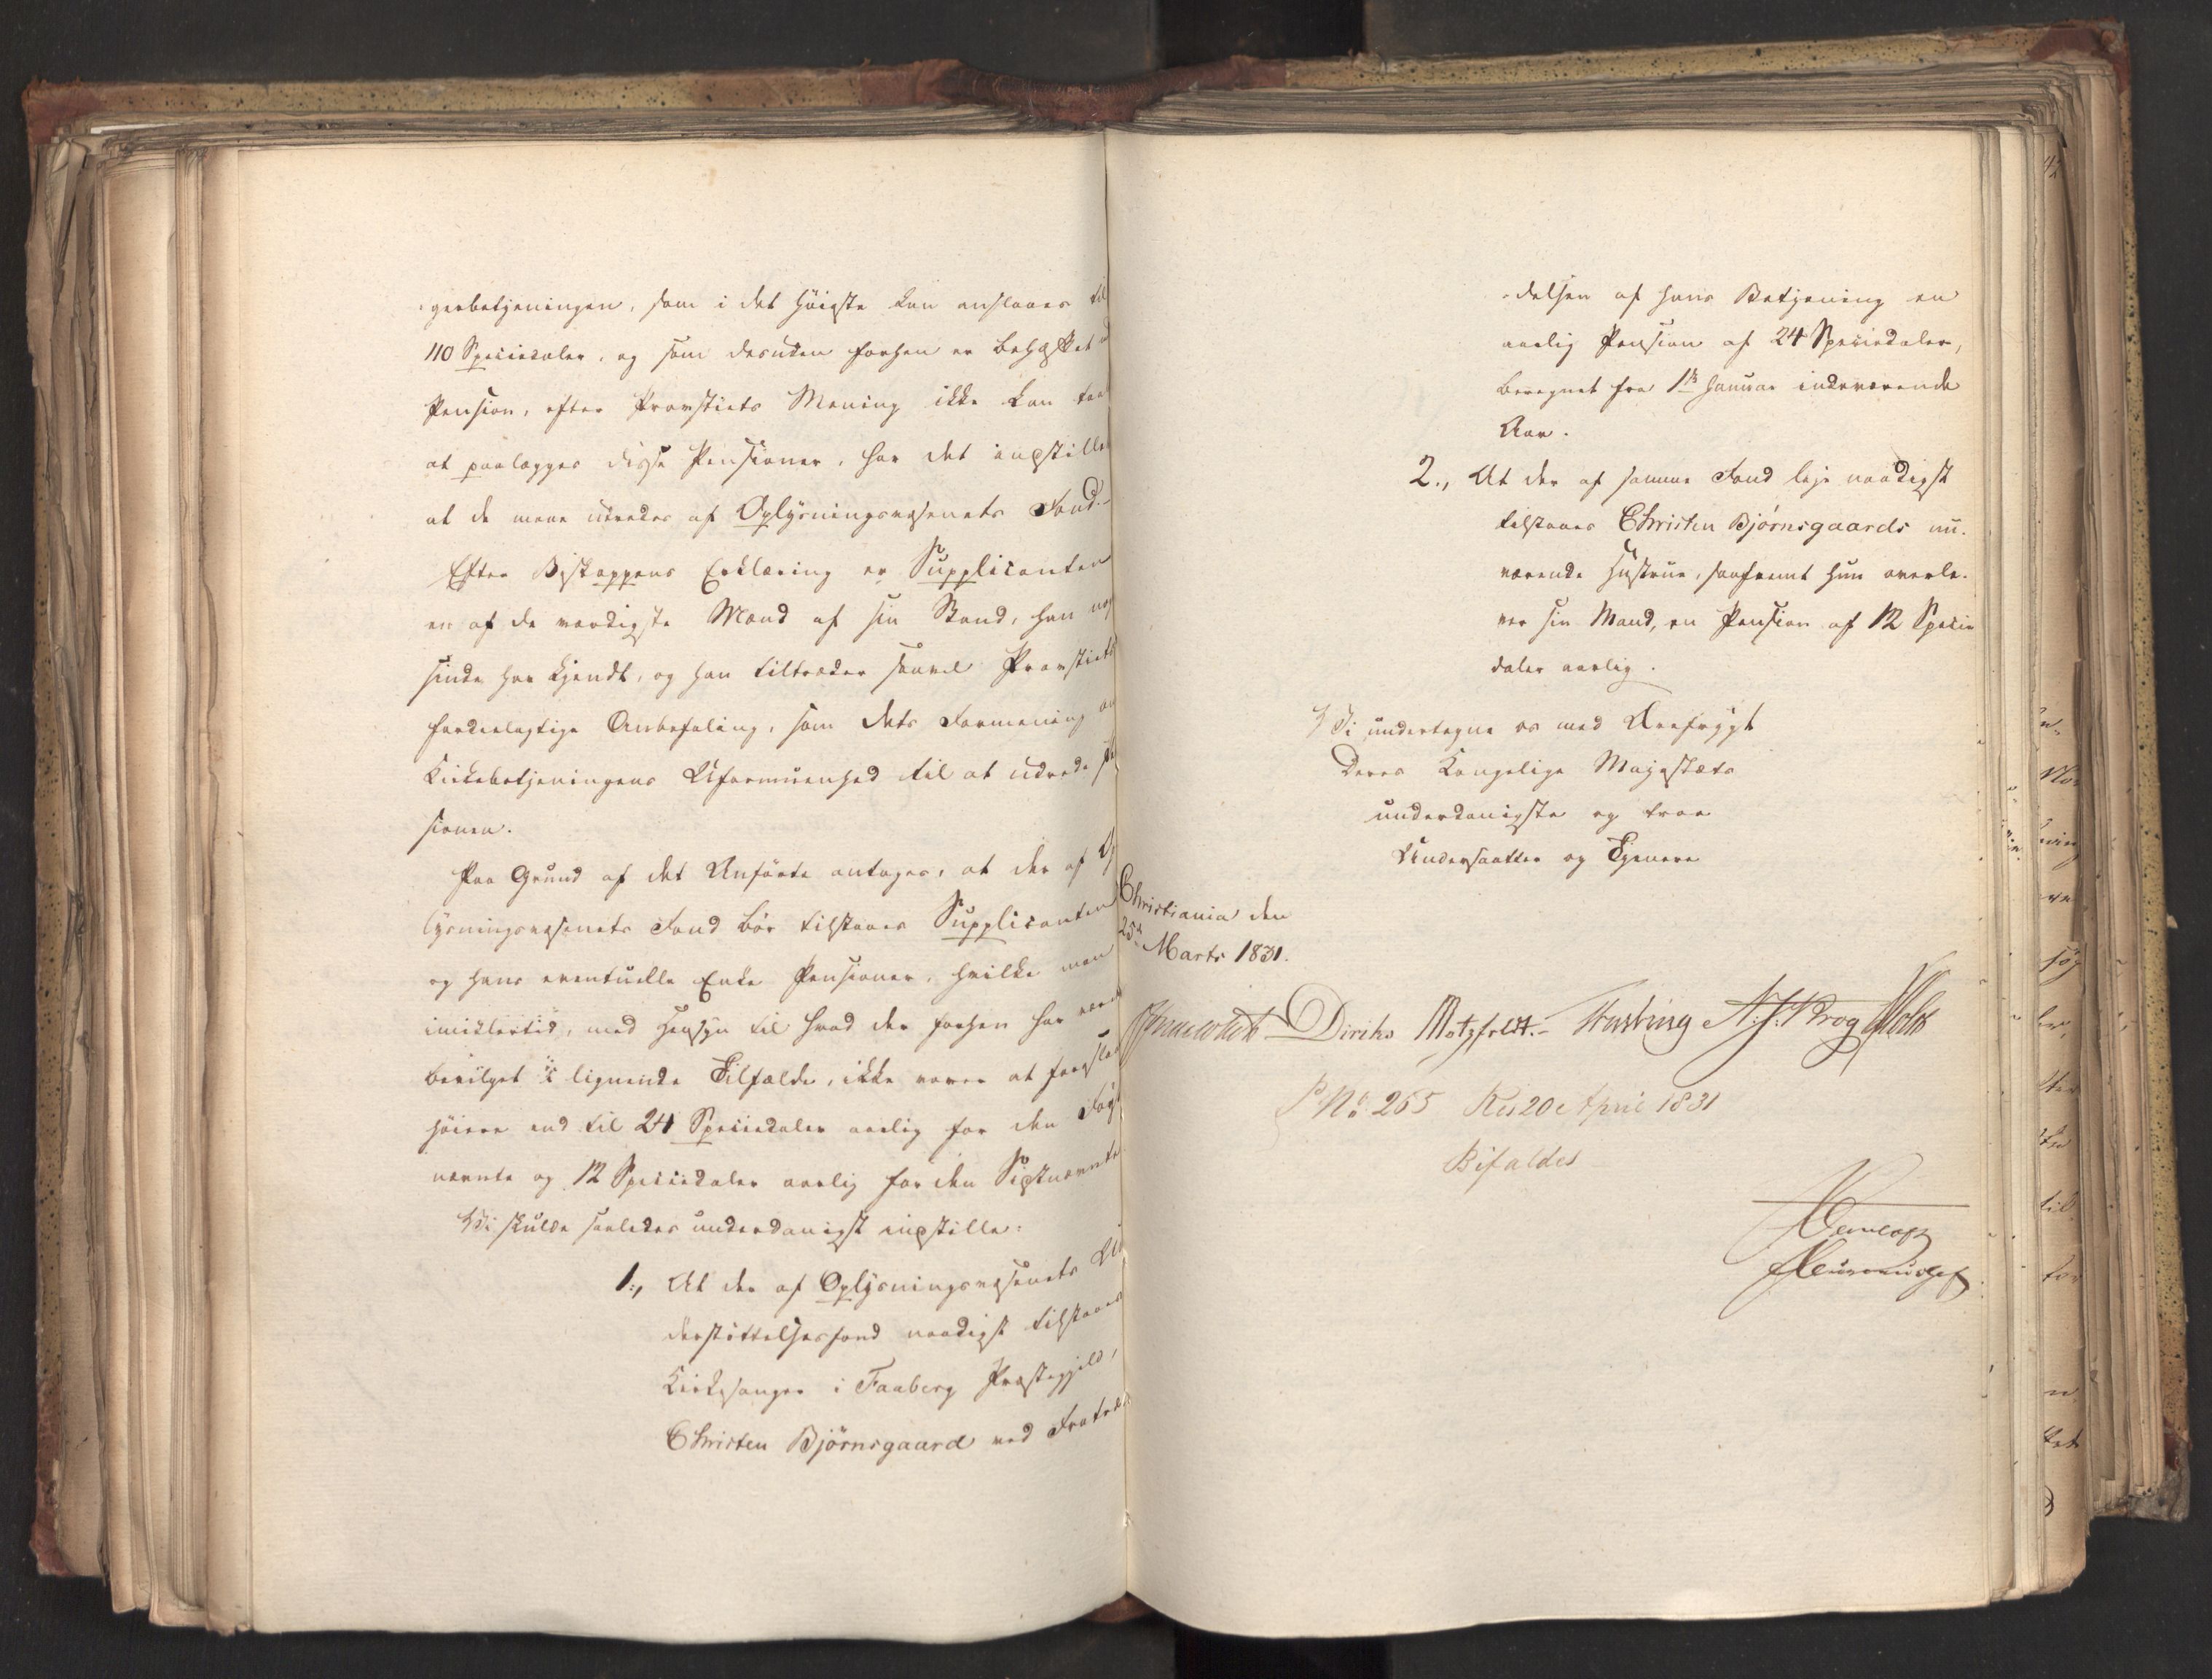 gerbetjeningen, som i det høieste kan ansláaes til
110 Speciedaler, og som desuden forhen er behæftet
Pension, efter Provstiets Mening ikke kan taa
at paalægges disse Pensioner, har det indstillet
at de maae udredes af Oplysningsvæsenets Fond.-
Efter Biskoppens Erklæring er Supplicanten
en af de værdigste Mænd af sin Stand, han no
sinde har kjendt, og han tiltræder saavel Provstiets
fordeelagtige Anbefaling, som dets Formening
Kirkebetjeningens Uformuenhed til at udrede
sionen.
Paa Grund af det Anførte antages, at der af Op
lysningsvæsenets Fond bør tilstaaes Supplicanten
og hans eventuelle Enke Pensioner, hvilke man
imidlertid, med Hensyn til hvad der forhen har
bevilget i lignende Tilfælde, ikke vover at foreslaa
høiere end til 24 Speciedaler aarlig for den Først
nævnte og 12 Speciedaler aarlig for den Sidstnævnte
Vi skulde saaledes underdanigst indstille:
1., At der af Oplysningsvæsenets Un
derstøttelsesfond naadigst tilstaaes
Kirkesanger i Faaberg Præstegjeld,
Christen Bjørnsgaard ved Fratræ
-delsen af hans Betjening en
aarlig Pension af 24 Speciedaler,
beregnet fra 1ste Januar indeværende
Aar.
2., At der af samme Fond ligesaa naadigst
tilstaaes Christen Bjørnsgaards nu-
værende Hustrue, saafremt hun overle-
ver sin Mand, en Pension af 12 Specie
daler aarlig.
Vi undertegne os med Ærefrygt
Deres Kongelige Majestæts
underdanigste og troe
Undersaatter og Tjenere
Christiania den
25de Marts 1831.
Diriks Motzfeldt.- Fasting N. J. Krog Holst
P. No 265 Res 20 April 1831
Bifaldes